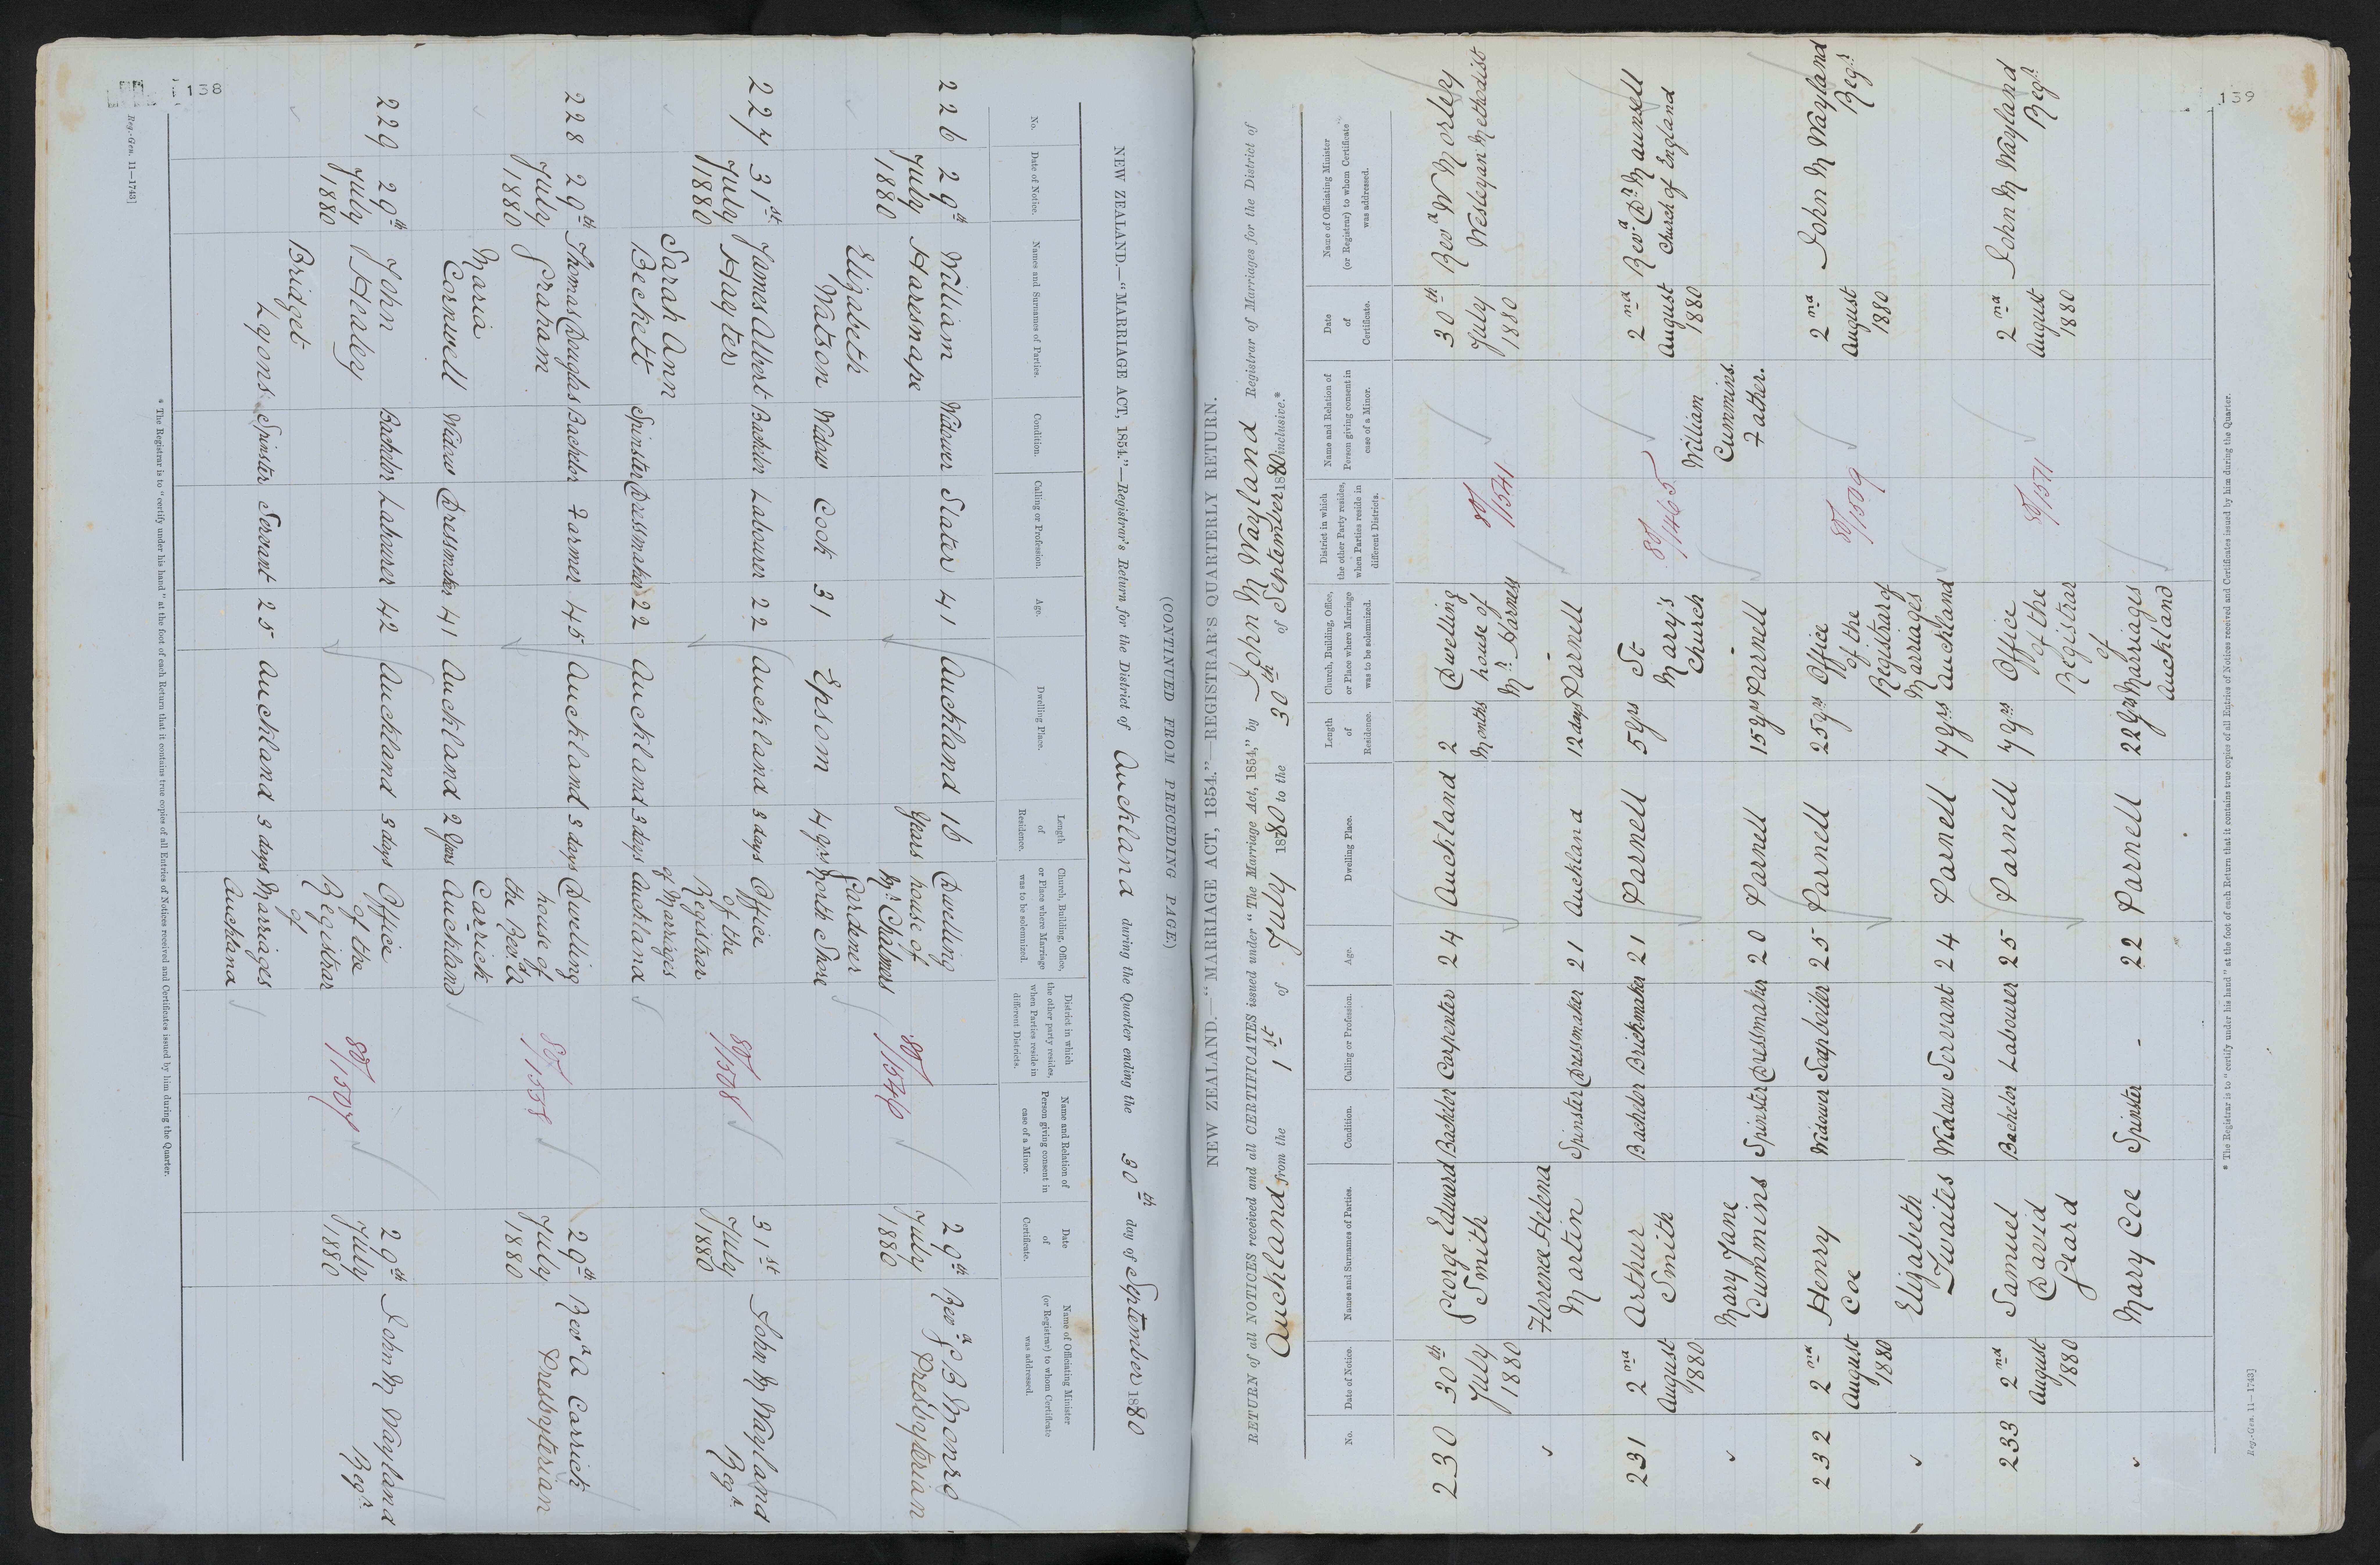 138
NEW ZEALAND.—"MARRIAGE ACT, 1854."—Registrar's Return for the District of Auckland during the Quarter ending the 30th day of September 1880
(CONTINUED FROM PRECEDING PAGE)
No. | Date of Notice. | Names and Surnames of Parties. | Condition. | Calling or Profession. | Age. | Dwelling Place. | Length of Residence. | Church, Building, Office, or Place where Marriage was to be solemnized. | District in which the other party resides, when Parties reside in different Districts. | Name and Relation of Person giving consent in case of a Minor. | Date of Certificate. | Name of Officiating Minister (or Registrar) to whom Certificate was addressed.
226 | 29th July 1880 | William Haresnape | Widower | Slater | 41 | Auckland | 16 Years | Dwelling house of Mr Chalmers Gardener | 80/1546 | 29th July 1880 | Revd G B Monro Presbyterian
Elizabeth Watson | Widow | Cook | 31 | Epsom | 4 yrs | North Shore
227 | 31st July 1880 | James Albert Hayter | Bachelor | Labourer | 22 | Auckland | 3 days | Office of the Registrar of Marriages | 80/1508 | 31st July 1880 | John M Wayland Regr.
Sarah Ann Beckett | Spinster | Dressmaker | 22 | Auckland | 3 days | Auckland
228 | 29th July 1880 | Thomas Douglas Graham | Bachelor | Farmer | 45 | Auckland | 3 days | Dwelling house of the Revd. A Carrick | 80/1558 | 29th July 1880 | Revd A Carrick Presbyterian
Maria Cornwell | Widow | Dressmaker | 41 | Auckland | 2 Years | Auckland
229 | 29th July 1880 | John Healey | Bachelor | Labourer | 42 | Auckland | 3 days | Office of the Registrar of | 80/1507 | 29th July 1880 | John M Wayland Regr.
Bridget Lyons | Spinster | Servant | 25 | Auckland | 3 days | Marriages Auckland
* The Registrar is to "certify under his hand" at the foot of each Return that it contains true copies of all Entries of Notices received and Certificates issued by him during the Quarter.
Reg.-Gen. 11—1743]
139
NEW ZEALAND.—"MARRIAGE ACT, 1854."—REGISTRAR'S QUARTERLY RETURN.
RETURN of all NOTICES received and all CERTIFICATES issued under "The Marriage Act, 1854," by John M Wayland Registrar of Marriages for the District of
Auckland from the 1st of July 1880 to the 30th of September 1880 inclusive.*
No. | Date of Notice. | Names and Surnames of Parties. | Condition. | Calling or Profession. | Age. | Dwelling Place. | Length of Residence. | Church, Building, Office, or Place where Marriage was to be solemnized. | District in which the other Party resides, when Parties reside in different Districts. | Name and Relation of Person giving consent in case of a Minor. | Date of Certificate. | Name of Officiating Minister (or Registrar) to whom Certificate was addressed.
230 | 30th July 1880 | George Edward Smith | Bachelor | Carpenter | 24 | Auckland | 2 Months | Dwelling house of Mr Harness | 80/1541 | 30th July 1880 | Revd W Morley Wesleyan Methodist
" | Florence Helena Martin | Spinster | Dressmaker | 21 | Auckland | 12 days | Parnell
231 | 2nd August 1880 | Arthur Smith | Bachelor | Brickmaker | 21 | Parnell | 5 yrs | St Mary's Church | 80/1465 | 2nd August 1880 | Revd. Dr Maunsell Church of England
" | Mary Jane Cummins | Spinster | Dressmaker | 20 | Parnell | 15 yrs | Parnell | William Cummins. Father.
232 | 2nd August 1880 | Henry Coe | Widower | Soap boiler | 25 | Parnell | 25 yrs | Office of the Registrar of Marriages | 80/1509 | 2nd August 1880 | John M Wayland Regr.
" | Elizabeth Twaites | Widow | Servant | 24 | Parnell | 7 yrs | Auckland
233 | 2nd August 1880 | Samuel David Geard | Bachelor | Labourer | 25 | Parnell | 7 yrs | Office of the Registrar of | 80/1511 | 2nd August 1880 | John M Wayland Regr.
" | Mary Coe | Spinster | - | 22 | Parnell | 22 yrs | Marriages Auckland
* The Registrar is to "certify under his hand" at the foot of each Return that it contains true copies of all Entries of Notices received and Certificates issued by him during the Quarter.
Reg.-Gen. 11—1743]